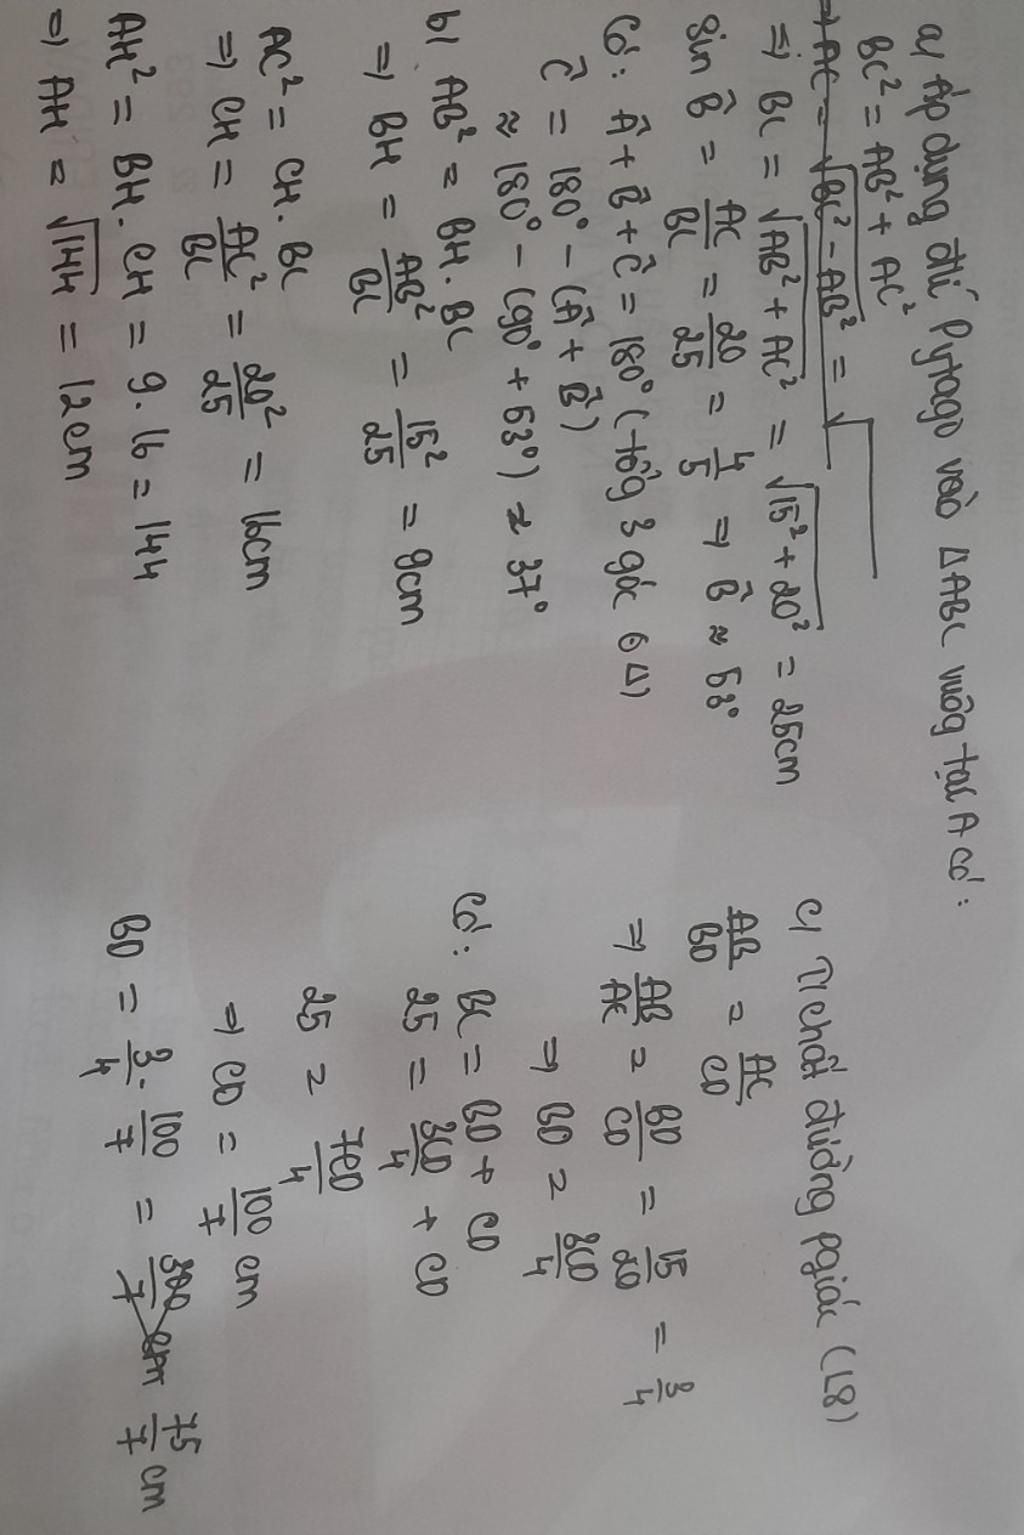 a) Áp dụng đlí Pytago vào ΔABC vuông tại A có:
BC² = AB² + AC²
⇒ AC = √BC² - AB² = √
⇒ BC = √AB² + AC² = √15² + 20² = 25cm
sin B̂ = AC/BC = 20/25 = 4/5 ⇒ B̂ ≈ 53°
Có: Â + B̂ + Ĉ = 180° (tổg 3 góc Δ)
Ĉ = 180° - (Â + B̂)
≈ 180° - (90° + 53°) ≈ 37°
b) AB² = BH. BC
⇒ BH = AB²/BC = 15²/25 = 9cm
AC² = CH. BC
⇒ CH = AC²/BC = 20²/25 = 16cm
AH² = BH. CH = 9. 16 = 144
⇒ AH = √144 = 12cm
c) T/chất đường pgiác (L8)
AB/BD = AC/CD
⇒ AB/AC = BD/CD = 15/20 = 3/4
⇒ BD = 3CD/4
Có: BC = BD + CD
25 = 3CD/4 + CD
25 = 7CD/4
⇒ CD = 100/7 cm
BD = 3/4 . 100/7 = 300/7 cm 75/7 cm